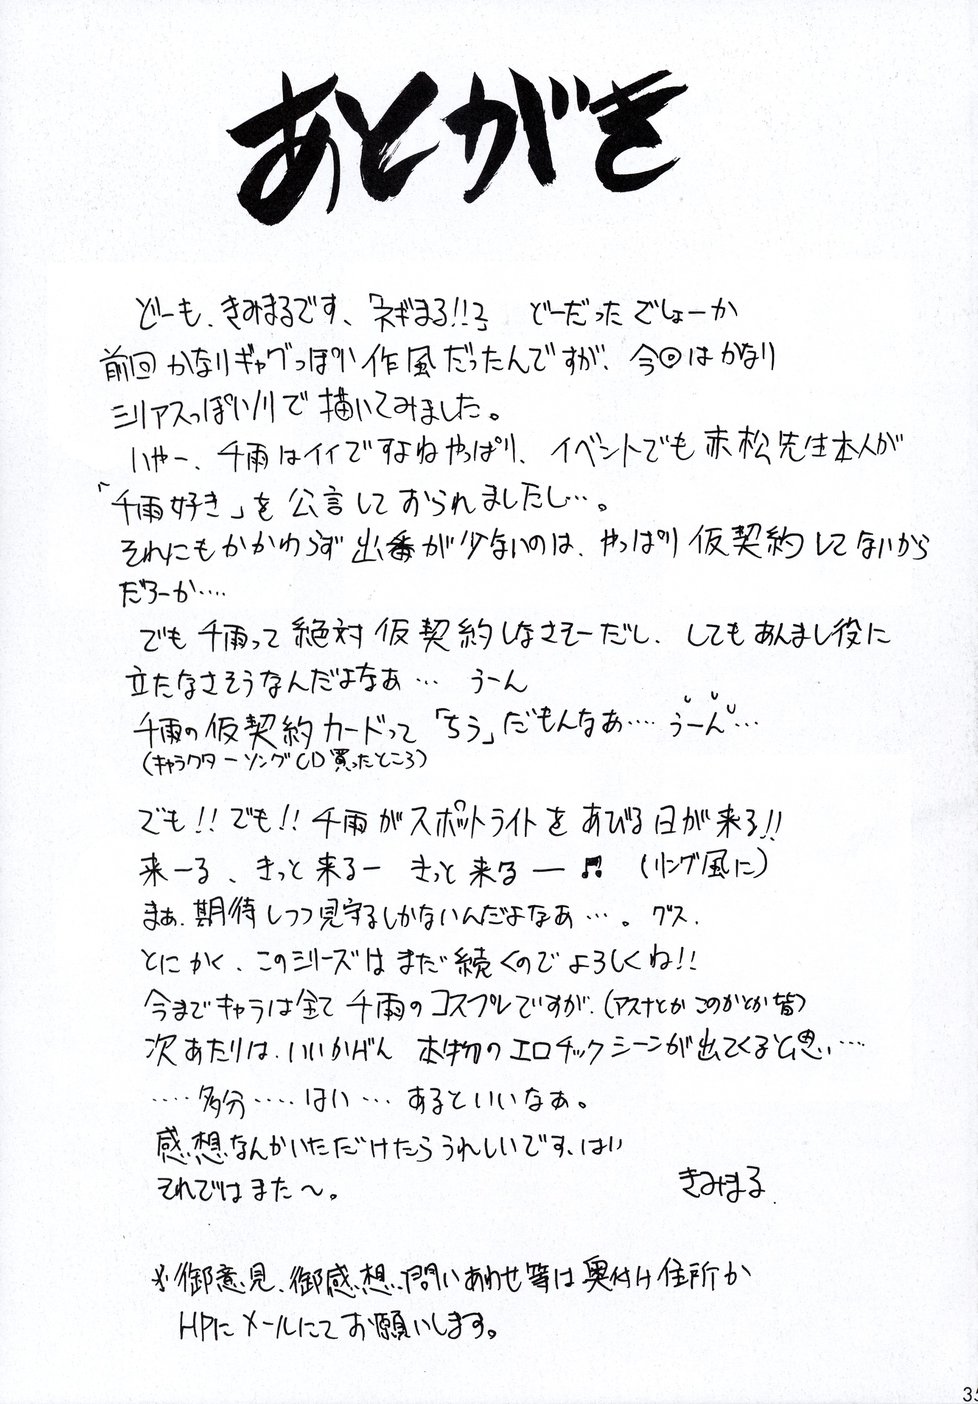 あとがき
どーも、きみまるです、「ネギまる!!」 どーだったでしょーか
前回かなりギャグっぽい作風だったんですが、今回はかなり
シリアスっぽいノリで描いてみました。
いやー、千雨はイイですよねやっぱり、イベントでも赤松先生本人が
「千雨好き」を公言しておられましたし…。
それにもかかわらず出番が少ないのは、やっぱり仮契約してないから
だろーか‥‥
でも千雨って絶対仮契約しなさそーだし、してもあんまし役に
立たなさそうなんだよなあ… うーん
千雨の仮契約カードって「ちう」だもんなあ‥‥うーん…
(キャラクターソングCD買ったところ)
でも!!でも!!千雨がスポットライトをあびる日が来る!!
来ーる、きっと来るー きっと来るー♬ (リング風に)
まぁ、期待しつつ見守るしかないんだよなあ…。グス.
とにかく、このシリーズはまだ続くのでよろしくね!!
今までキャラは全て千雨のコスプレですが、(アスナとかこのかとか皆)
次あたりは、いいかげん 本物のエロチックシーンが出てくると思い…
‥‥多分‥‥はい…あるといいなぁ。
感想なんかいただけたらうれしいです、はい
それではまた〜。
きみまる
※御意見、御感想、問いあわせ等は奥付け住所か
HPにメールにてお願いします。
35